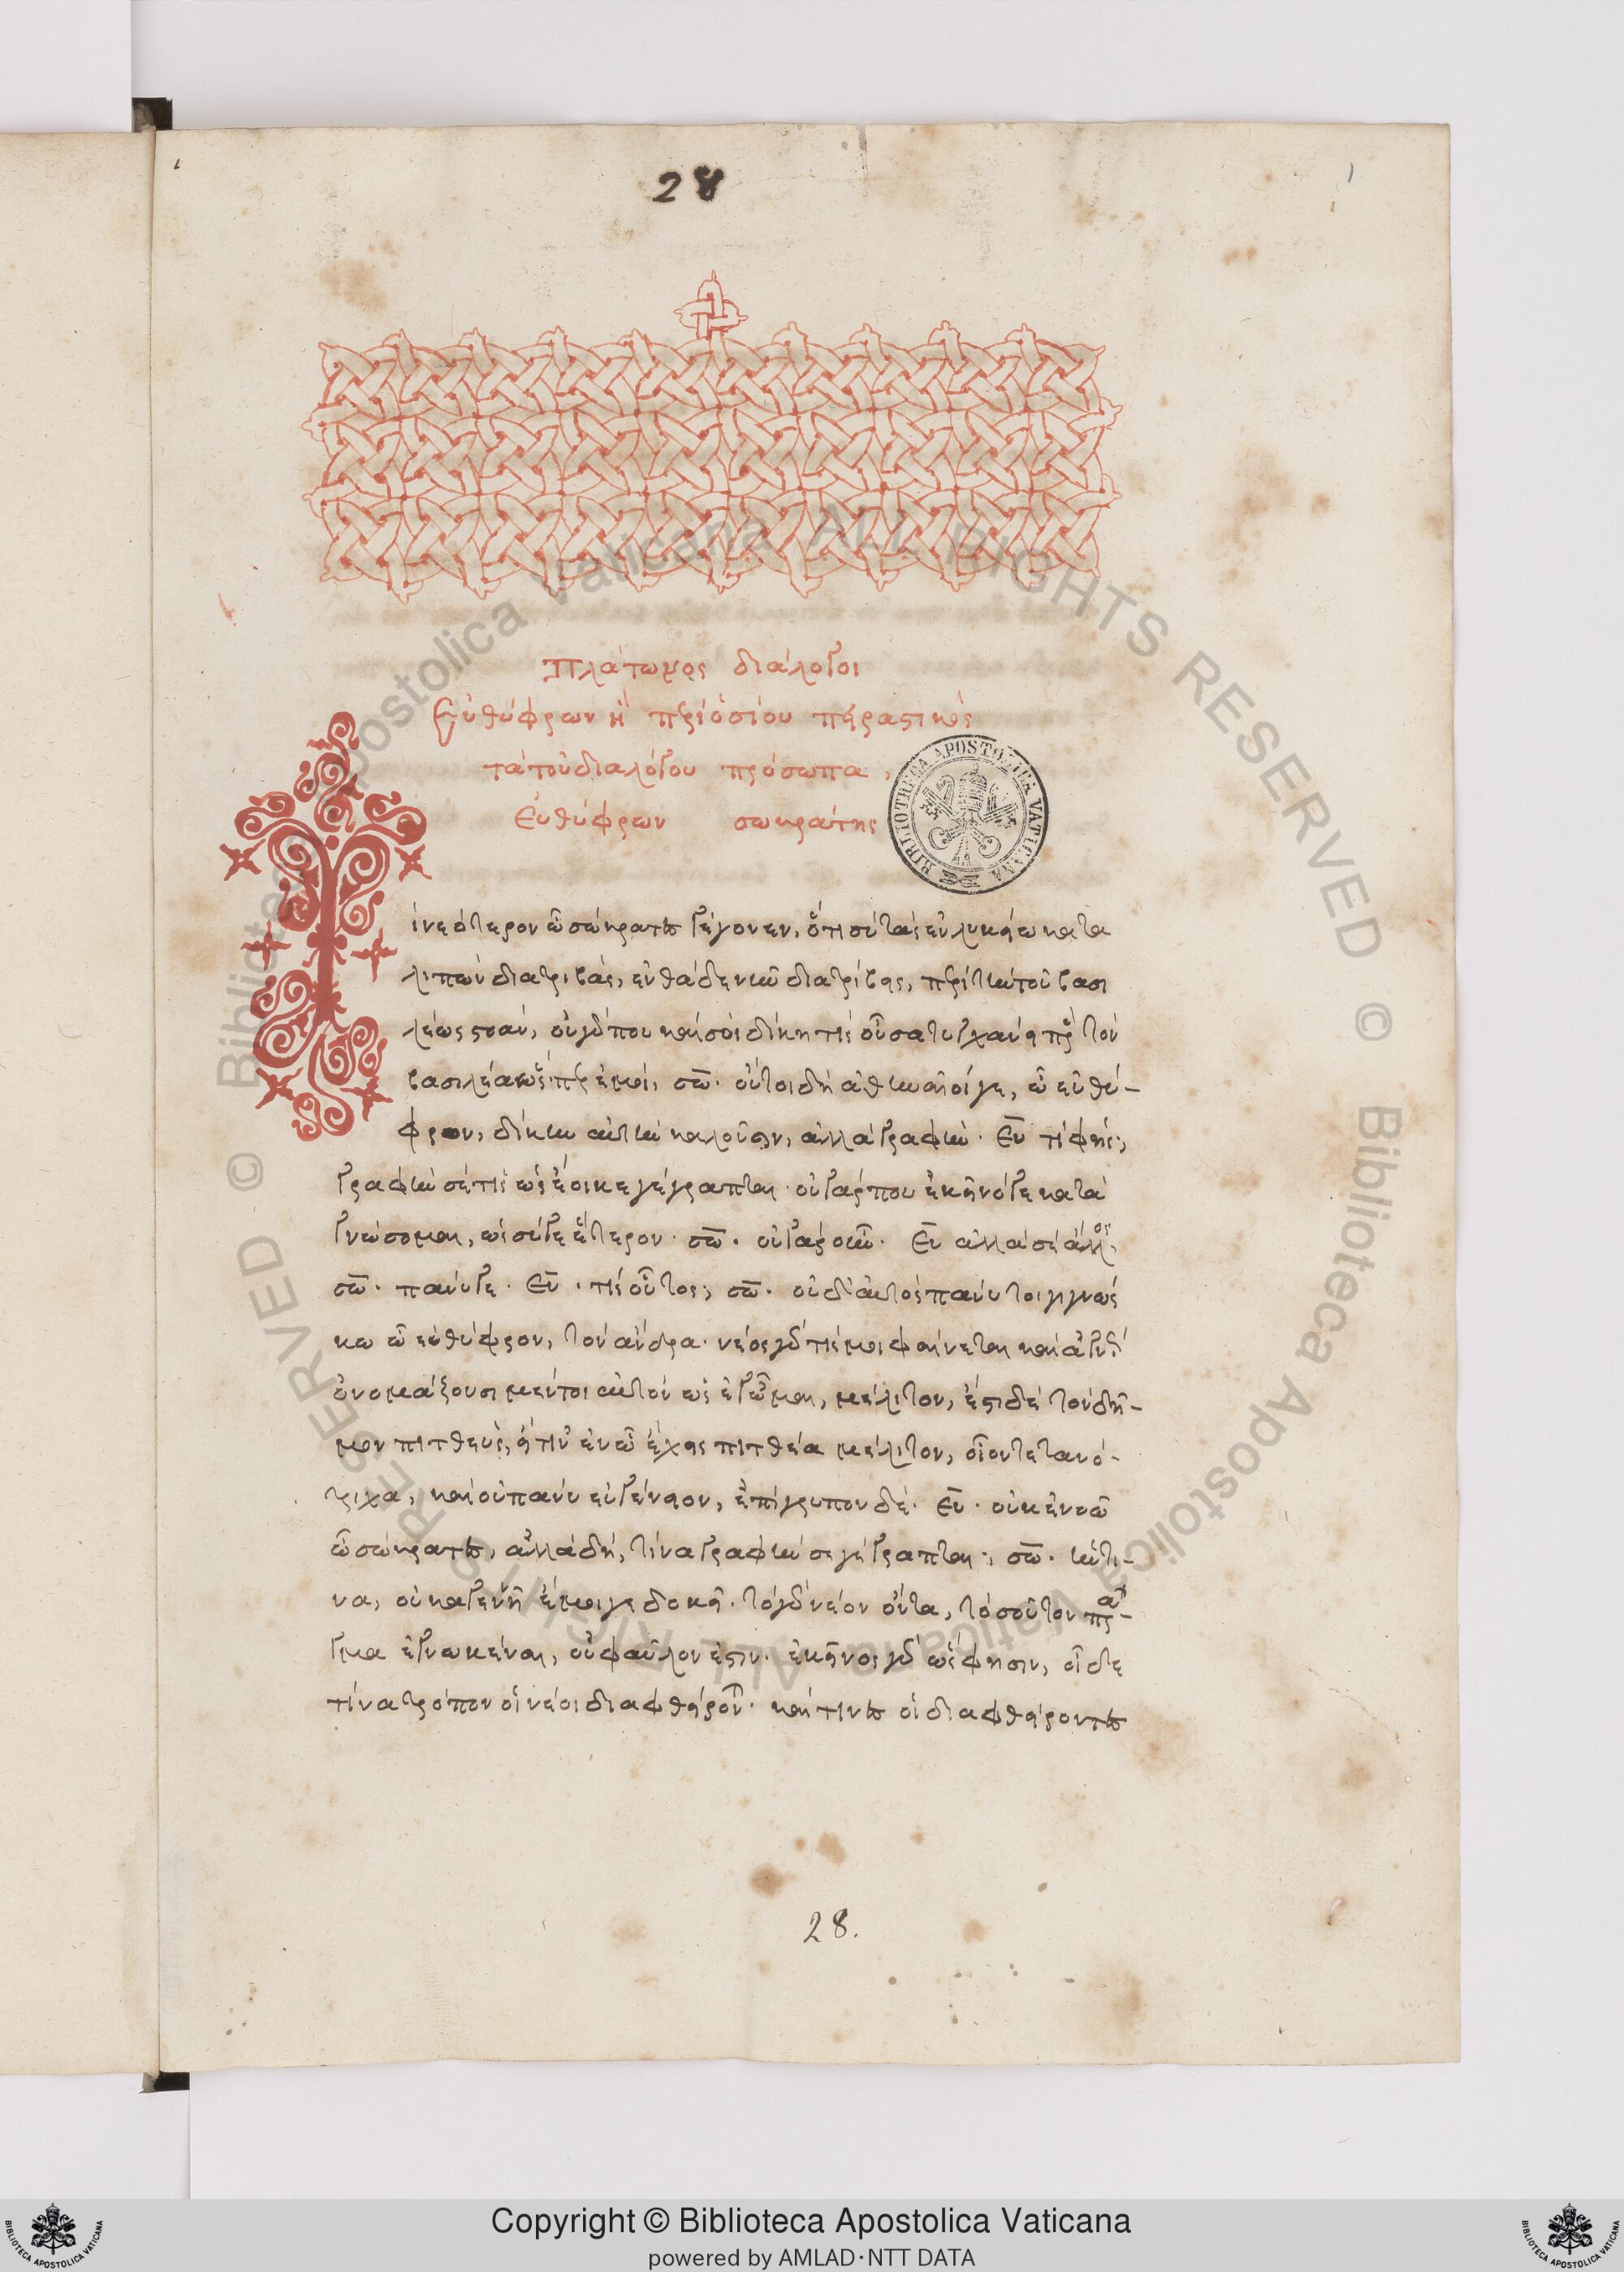 28
1
Πλάτωνος διάλογοι
Εὐθύφρων ἢ περὶ ὁσίου πειραστικός
τὰ τοῦ διαλόγου πρόσωπα
Εὐθύφρων σωκράτης
Τί νεότερον ὦ σώκρατες γέγονεν, ὅτι σὺ τὰς ἐν λυκείω κατα
λιπὼν διατριβάς, ἐνθάδε νῦν διατρίβεις, περὶ τὴν τοῦ βασι
λέως στοάν, οὐ γάρ που καὶ σοὶ δίκη τίς οὖσα τυγχάνει πρὸς τὸν
βασιλέα ὥσπερ ἐμοί, σω. οὔτοι δὴ ἀθηναῖοί γε, ὦ εὐθύ-
φρον, δίκην αὐτὴν καλοῦσιν, ἀλλὰ γραφήν. Ευ τί φής;
γραφὴν σέ τις ὡς ἔοικε γέγραπται. οὐ γάρ που ἐκεῖνό γε κατα
γνώσομαι, ὡς σύ γε ἕτερον. σω. οὐ γὰρ οὖν. Ευ ἀλλὰ σὲ ἄλλος.
σω. πάνυ γε. Ευ. τίς οὗτος; σω. οὐδ' αὐτὸς πάνυ τοι γιγνώς
κω ὦ εὐθύφρον, τὸν ἄνδρα. νέος γάρ τίς μοι φαίνεται καὶ ἀγνώς
ὀνομάζουσι μέντοι αὐτὸν ὡς ἐγῶμαι, μέλιτον, ἔστι δὲ τὸν δῆ-
μον πιτθεύς, εἴ τιν' ἐν νῶ ἔχεις πιτθέα μέλιτον, οἷον τετανό-
τριχα, καὶ οὐ πάνυ εὐγένειον, ἐπίγρυπον δέ. Ευ. οὐκ ἐννοῶ
ὦ σώκρατες, ἀλλὰ δὴ, τίνα γραφήν σε γέγραπται; σω. ἥντι-
να, οὐκ ἀγεννῆ ἔμοιγε δοκεῖ. τὸ γὰρ νέον ὄντα, τοσοῦτον πρᾶ-
γμα ἐγνωκέναι, οὐ φαῦλόν ἐστιν. ἐκεῖνος γὰρ ὥς φησιν, οἶδε
τίνα τρόπον οἱ νέοι διαφθείρονται. καὶ τίνες οἱ διαφθείροντες
28.
BIBLIOTHECA APOSTOLICA VATICANA
© Biblioteca Apostolica Vaticana ALL RIGHTS RESERVED © Biblioteca Apostolica Vaticana ALL RIGHTS RESERVED
Copyright © Biblioteca Apostolica Vaticana
powered by AMLAD·NTT DATA
BIBLIOTECA APOSTOLICA VATICANA
BIBLIOTECA APOSTOLICA VATICANA